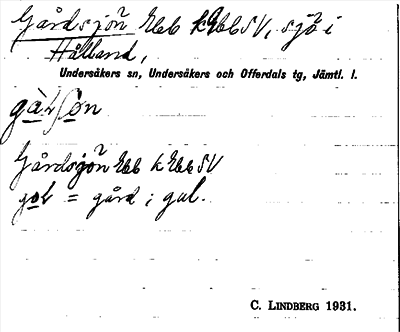 Gårdsjön Ebb k Ebb SV, sjö i
Hålland,
Undersåkers sn, Undersåkers och Offerdals tg, Jämtl. l.
Gårdsjön Ebb k Ebb SV
= gård i gal.
C. LINDBERG 1931.